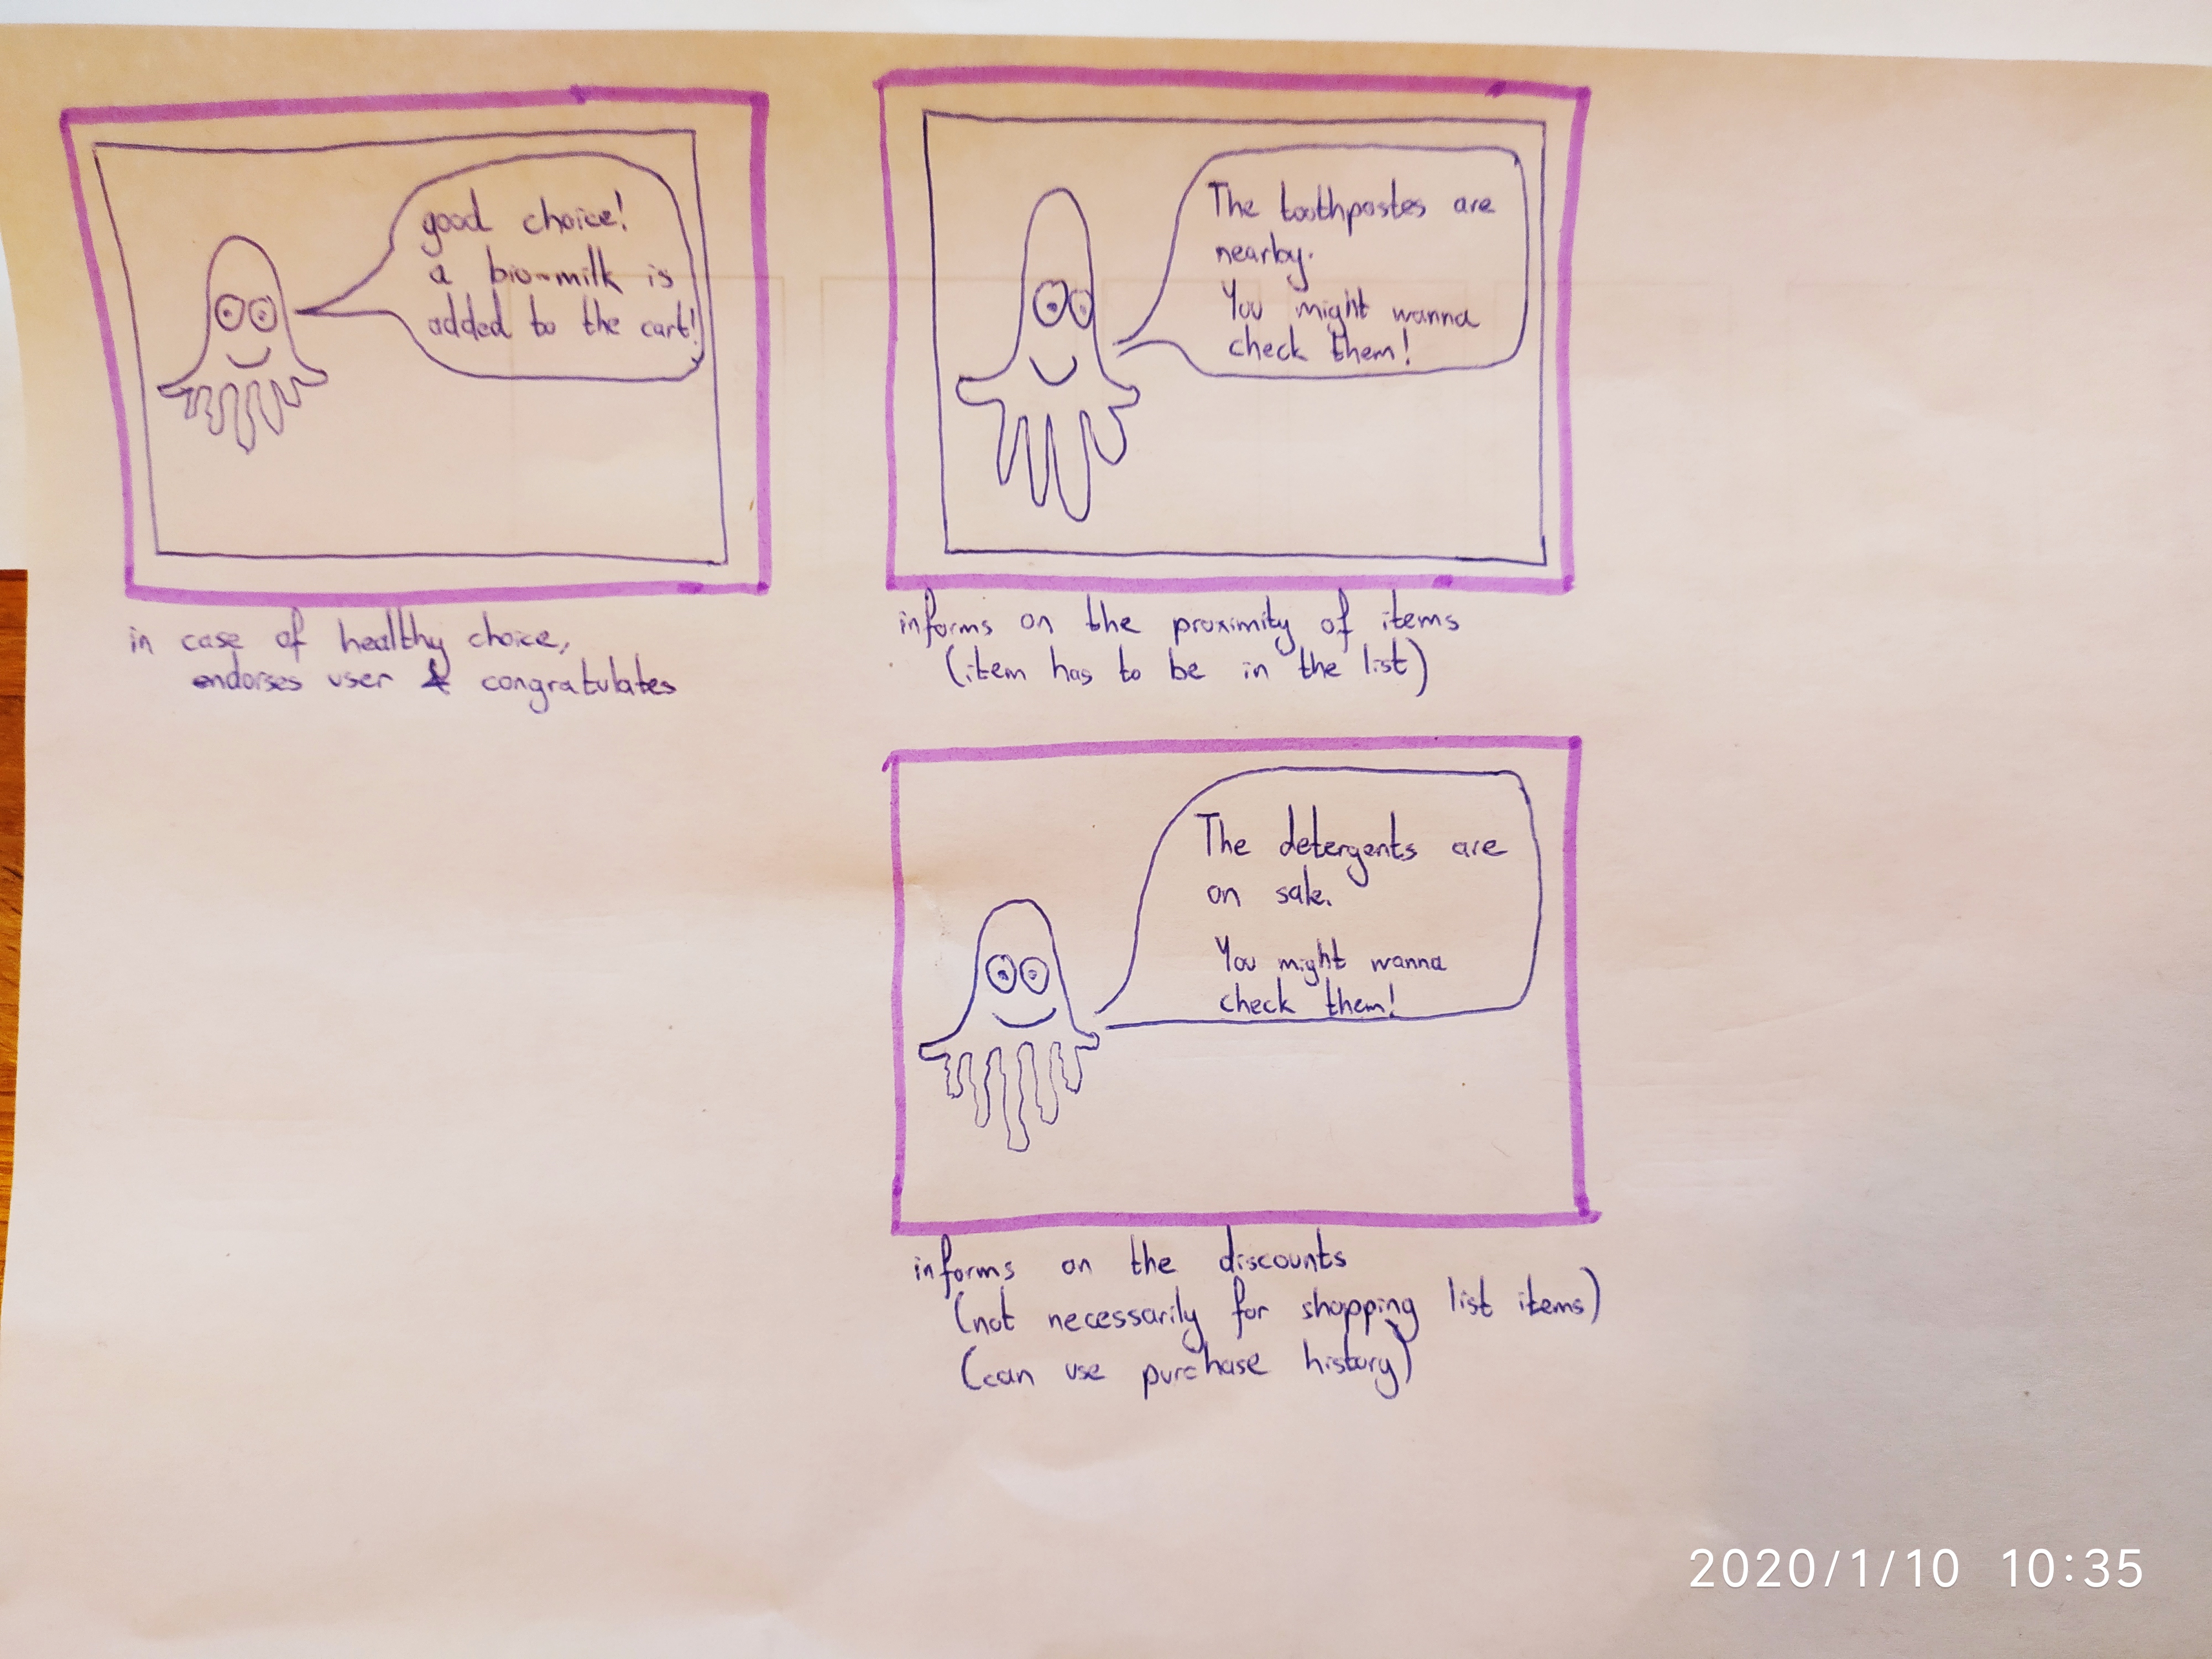 good choice!
a bio-milk is
added to the cart!
in case of healthy choice,
endorses user & congratulates
The toothpastes are
nearby.
You might wanna
check them!
informs on the proximity of items
(item has to be in the list)
The detergents are
on sale.
You might wanna
check them!
informs on the discounts
(not necessarily for shopping list items)
(can use purchase history)
2020/1/10 10:35